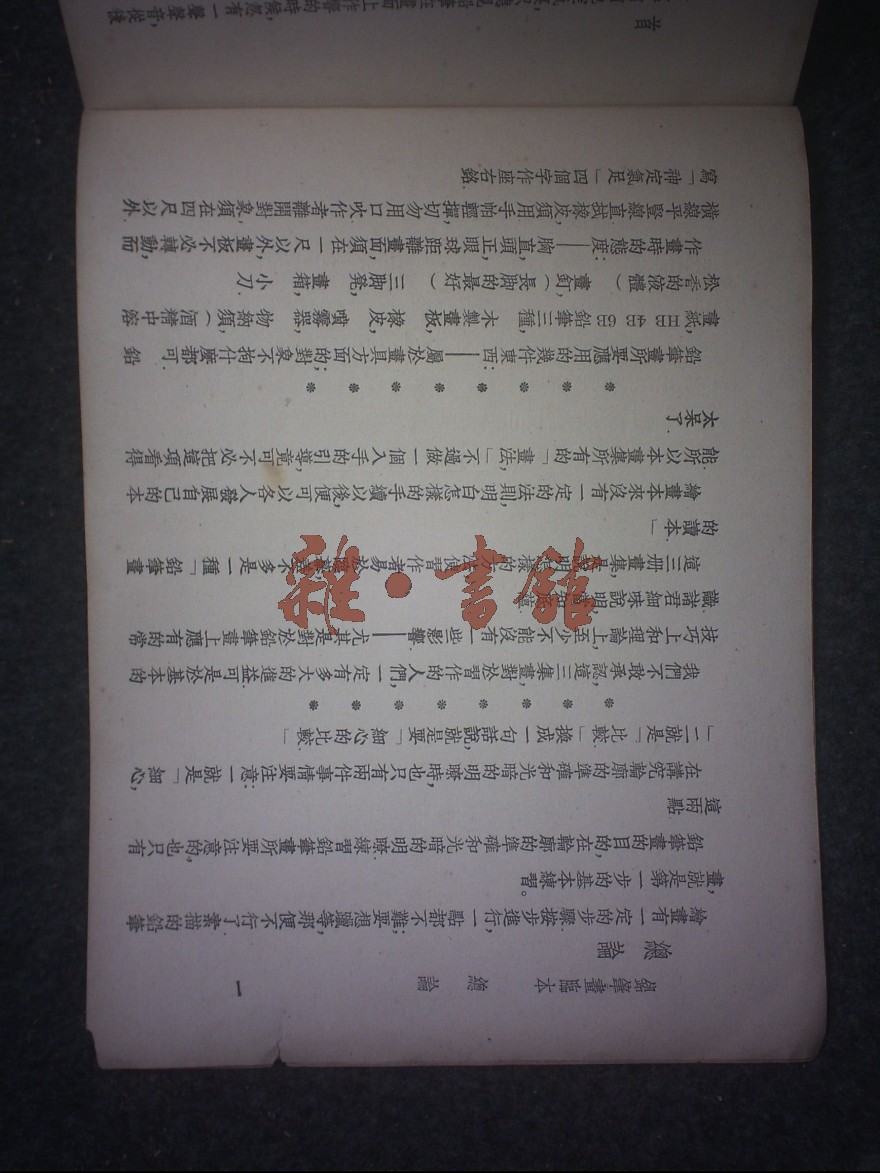 鉛筆畫臨本　總論　一
總論
繪畫有一定的步驟按步進行,一點都不難;要想躐等,那便不行了.素描的鉛筆
畫,就是第一步的基本練習。
鉛筆畫的目的,在輪廓的準確和光暗的明瞭.練習鉛筆畫所要注意的,也只有
這兩點.
在講究輪廓的準確和光暗的明瞭時,也只有兩件事情要注意:一就是「細心,
」二就是「比較.」換成一句話說,就是要「細心的比較」
* * * * * * *
我們不敢承認,這三集畫,對於習作的人們,一定有多大的進益.可是於基本的
技巧上和理論上,至少不能沒有一些影響——尤其是對於鉛筆畫上應有的常
識.諸君細味說明,
這三册畫集,是說明怎樣的方法,便習作者易於臨摹,差不多是一種「鉛筆畫
的讀本.」
繪畫本來沒有一定的法則,明白怎樣的手續以後,便可以各人發展自己的本
能.所以本畫集所有的「畫法,」不過做一個入手的引導,竟可不必把這項看得
太呆了.
* * * * * * *
鉛筆畫所要應用的幾件東西:——屬於畫具方面的;對象不拘什麼都可.鉛
畫紙,HB 4B 6B 鉛筆三種,木製畫板,橡皮,噴霧器,物納須(酒精中溶
松香的液體)畫釘,(長脚的最好)三脚凳,畫箱,小刀.
作畫時的態度:——胸直,頭正,眼球距離畫面須在一尺以外,畫板不必轉動,而
橫線平豎線直,拭橡皮須用手帕輕揮,切勿用口吹.作者離開對象,須在四尺以外.
寫「神定氣足」四個字作座右銘.
雜·書館